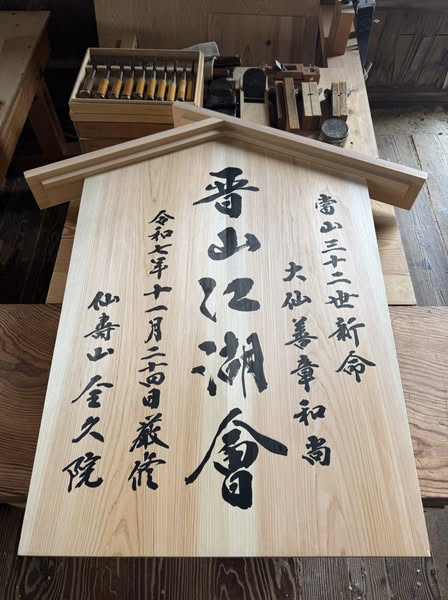 當山三十二世新命
大仙善章和尚
晋山江湖會
令和七年十一月二十四日厳修
仙壽山全久院